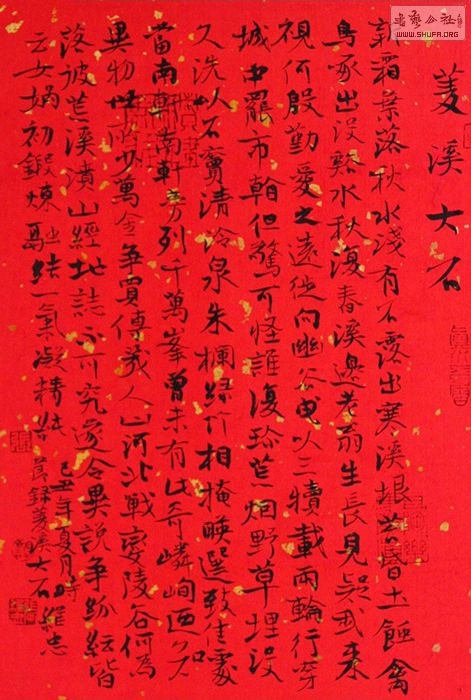 書藝公社
WWW.SHUFA.ORG
菱溪大石
新霜葉落秋水淺有石露出寒溪垠苔昏土蝕禽
鳥啄出没谿水秋復春溪邊老翁生長見疑我来
視何殷勤愛之遠徙向幽谷曳以三犢載兩輪行穿
城中罷市但驚可怪誰復珍荒烟野草埋没
久洗以石竇清泠泉朱欄緑竹相掩暎選致佳處
當南軒南軒旁列千萬峯曾未有此奇嶙峋迺知
異物世所少萬金争買傳幾人山河北戰變陵谷何為
落彼荒溪濆山經地誌不可究遂令異説争紛紜皆
云女媧初鍛煉融結一氣凝精純
己丑年夏月時
節録菱溪大石維忠